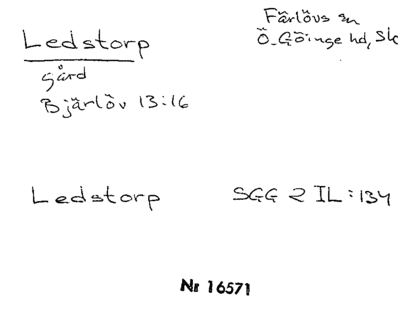 Ledstorp
gård
Bjärlöv 13:16
Färlövs sn
Ö. Göinge hd, Sk
Ledstorp
SGG 2 IL:134
Nr 16571